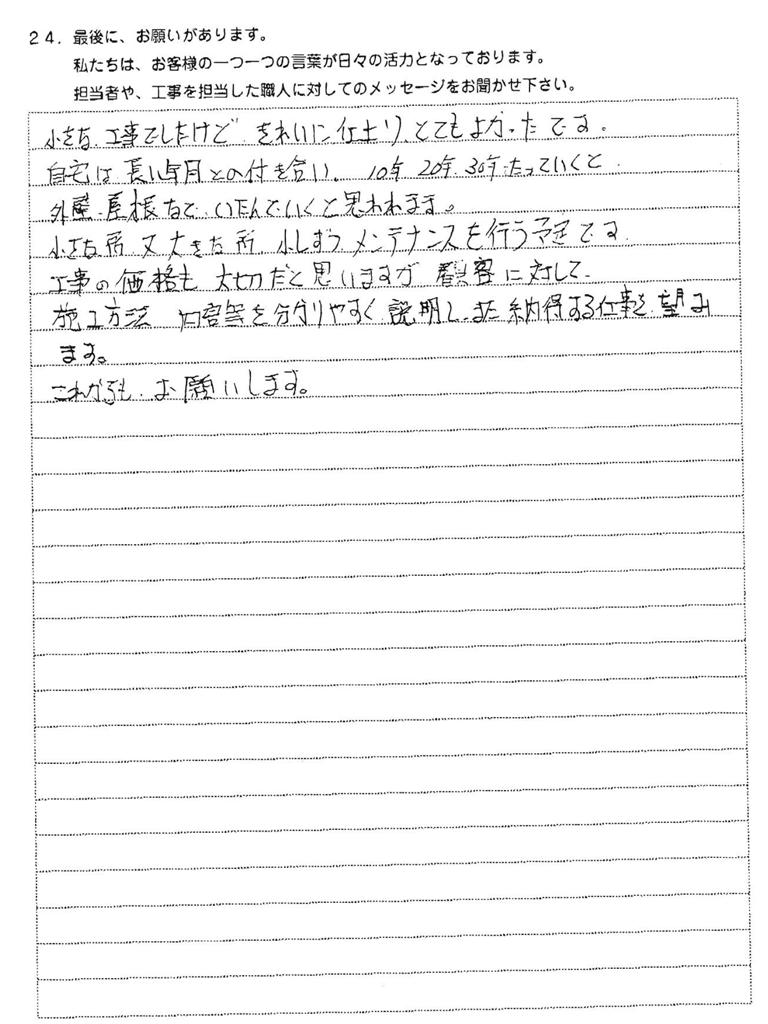 24. 最後に、お願いがあります。
私たちは、お客様の一つ一つの言葉が日々の活力となっております。
担当者や、工事を担当した職人に対してのメッセージをお聞かせ下さい。
小さな工事でしたけど きれいに仕上り、とてもよかったです。
自宅は長い年月との付き合い。 10年 20年 30年たっていくと
外壁・屋根など、いたんでいくと思われます。
小さな所 又 大きな所 少しずつ メンテナンスを行う予定です
工事の価格も 大切だと思いますが 顧客に対して、
施工方法 内容等を分かりやすく 説明し、また 納得する仕事を 望み
ます。
これからも、お願いします。